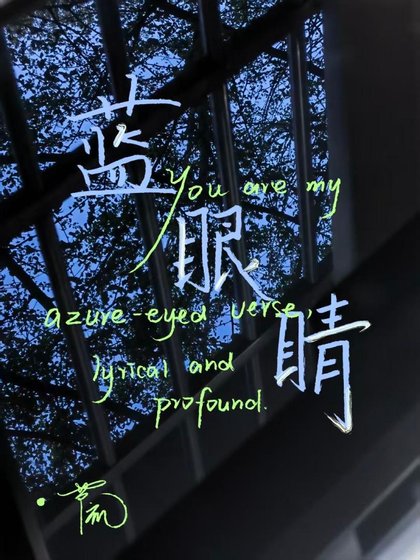 蓝眼睛
You are my
azure-eyed verse,
lyrical and
profound.